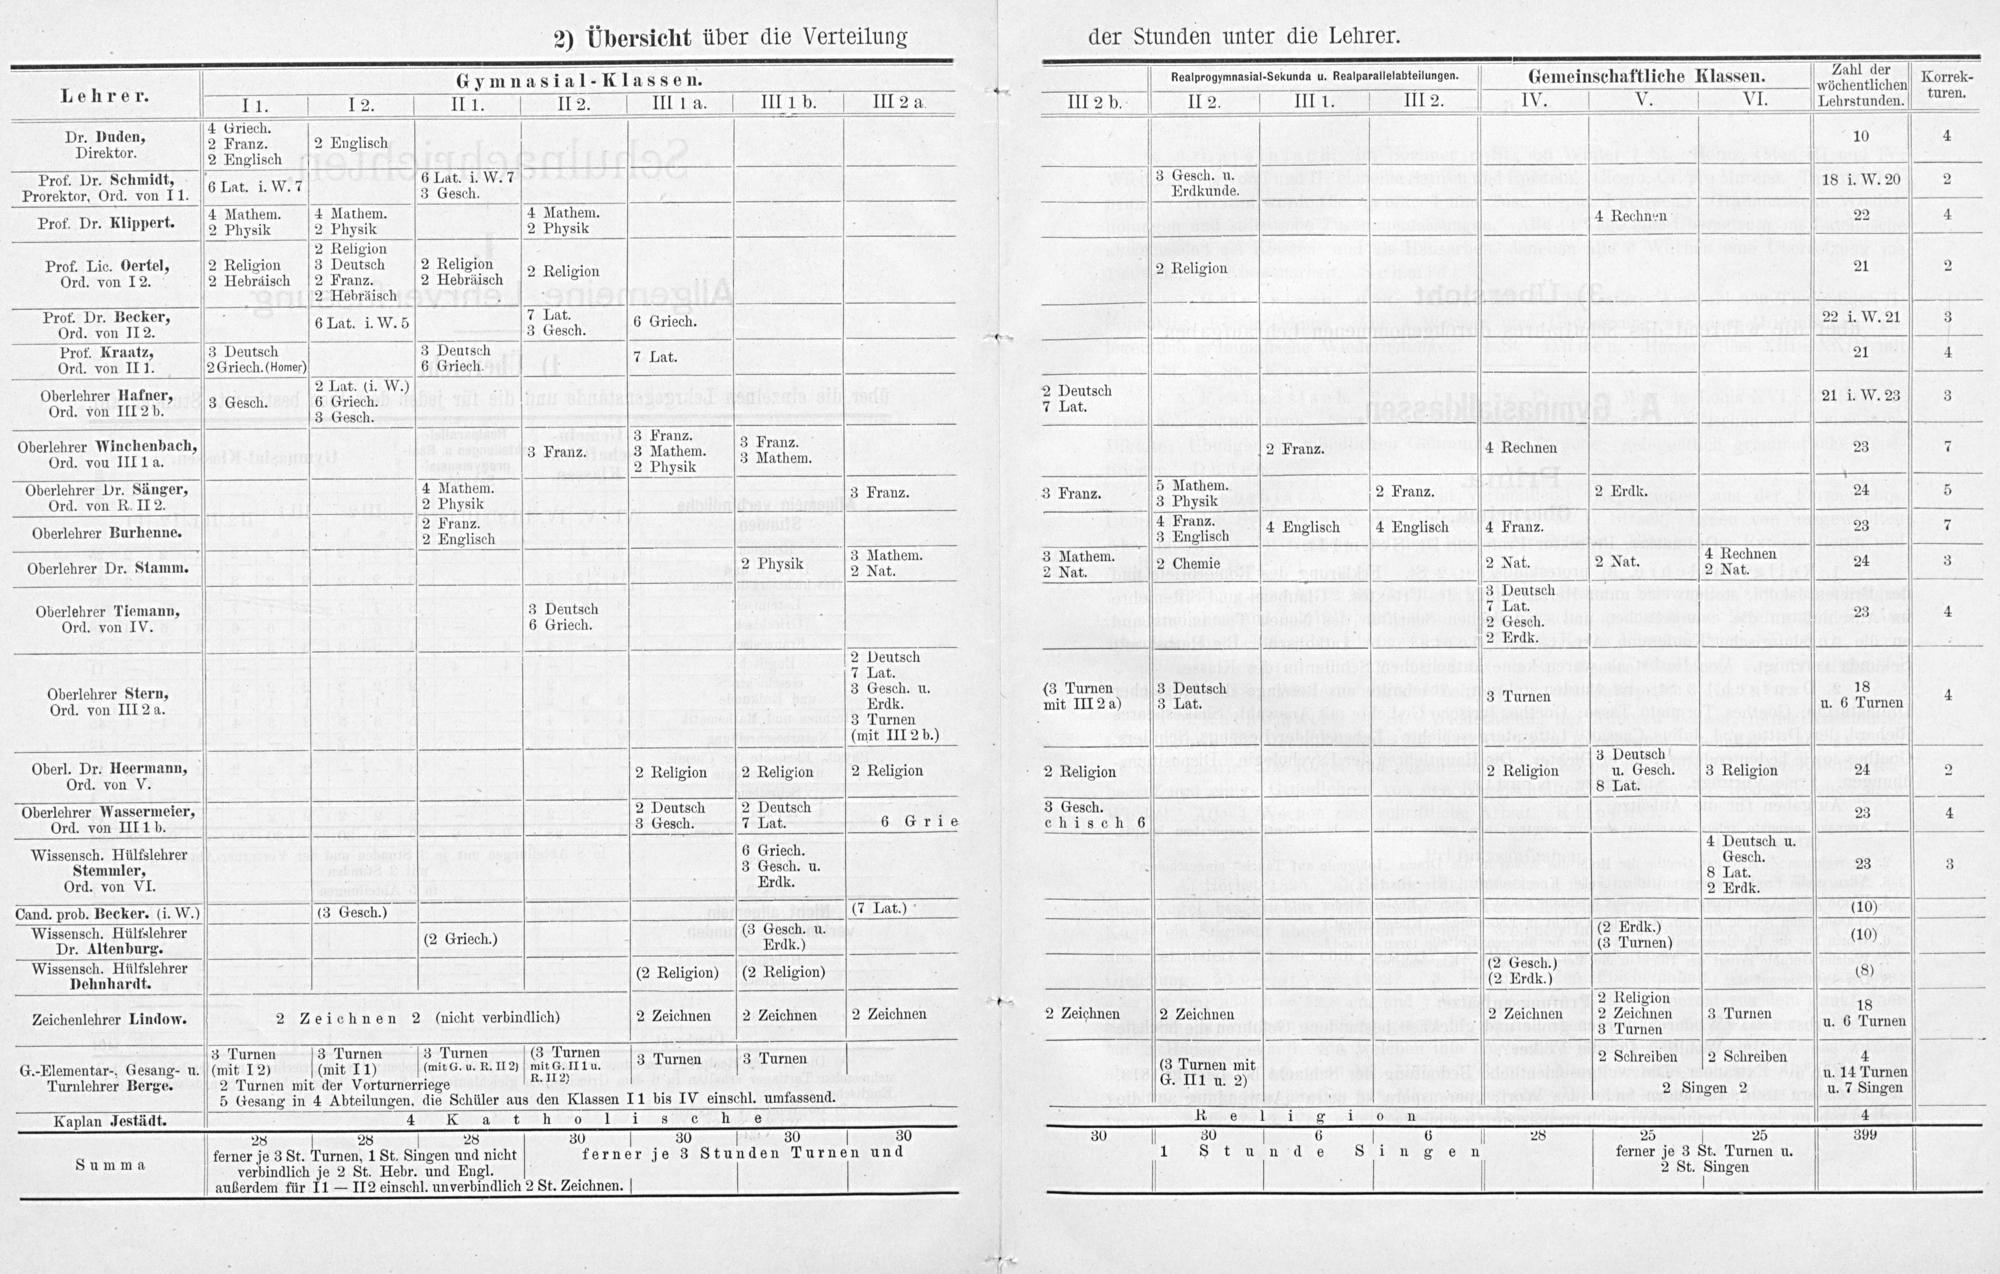 2) Übersicht über die Verteilung der Stunden unter die Lehrer.
Lehrer.
Gymnasial-Klassen.
Realprogymnasial-Sekunda u. Realparallelabteilungen.
Gemeinschaftliche Klassen.
Zahl der wöchentlichen Lehrstunden.
Korrek-turen.
I 1. I 2. II 1. II 2. III 1 a. III 1 b. III 2 a III 2 b. II 2. III 1. III 2. IV. V. VI.
Dr. Duden,
Direktor.
4 Griech.
2 Franz.
2 Englisch
2 Englisch
10 4
Prof. Dr. Schmidt,
Prorektor, Ord. von I 1.
6 Lat. i. W. 7
6 Lat. i. W. 7
3 Gesch.
3 Gesch. u.
Erdkunde.
18 i. W. 20 2
Prof. Dr. Klippert.
4 Mathem.
2 Physik
4 Mathem.
2 Physik
4 Mathem.
2 Physik
4 Rechnen
22 4
Prof. Lic. Oertel,
Ord. von I 2.
2 Religion
2 Hebräisch
2 Religion
3 Deutsch
2 Franz.
2 Hebräisch
2 Religion
2 Hebräisch
2 Religion
2 Religion
21 2
Prof. Dr. Becker,
Ord. von II 2.
6 Lat. i. W. 5
7 Lat.
3 Gesch.
6 Griech.
22 i. W. 21 3
Prof. Kraatz,
Ord. von II 1.
3 Deutsch
2 Griech. (Homer)
3 Deutsch
6 Griech.
7 Lat.
21 4
Oberlehrer Hafner,
Ord. von III 2 b.
3 Gesch.
2 Lat. (i. W.)
6 Griech.
3 Gesch.
2 Deutsch
7 Lat.
21 i. W. 23 3
Oberlehrer Winchenbach,
Ord. vou III 1 a.
3 Franz.
3 Franz.
3 Mathem.
2 Physik
3 Franz.
3 Mathem.
2 Franz.
4 Rechnen
23 7
Oberlehrer Dr. Sänger,
Ord. von R. II 2.
4 Mathem.
2 Physik
3 Franz.
3 Franz.
5 Mathem.
3 Physik
2 Franz.
2 Erdk.
24 5
Oberlehrer Burhenne.
2 Franz.
2 Englisch
4 Franz.
3 Englisch
4 Englisch
4 Englisch
4 Franz.
23 7
Oberlehrer Dr. Stamm.
2 Physik
3 Mathem.
2 Nat.
3 Mathem.
2 Nat.
2 Chemie
2 Nat.
2 Nat.
4 Rechnen
2 Nat.
24 3
Oberlehrer Tiemann,
Ord. von IV.
3 Deutsch
6 Griech.
3 Deutsch
7 Lat.
2 Gesch.
2 Erdk.
23 4
Oberlehrer Stern,
Ord. von III 2 a.
2 Deutsch
7 Lat.
3 Gesch. u.
Erdk.
3 Turnen
(mit III 2 b.)
(3 Turnen
mit III 2 a)
3 Deutsch
3 Lat.
3 Turnen
18
u. 6 Turnen
4
Oberl. Dr. Heermann,
Ord. von V.
2 Religion
2 Religion
2 Religion
2 Religion
2 Religion
3 Deutsch
u. Gesch.
8 Lat.
3 Religion
24 2
Oberlehrer Wassermeier,
Ord. von III 1 b.
2 Deutsch
3 Gesch.
2 Deutsch
7 Lat.
6 Grie
3 Gesch.
chisch 6
23 4
Wissensch. Hülfslehrer
Stemmler,
Ord. von VI.
6 Griech.
3 Gesch. u.
Erdk.
4 Deutsch u.
Gesch.
8 Lat.
2 Erdk.
23 3
Cand. prob. Becker. (i. W.)
(3 Gesch.)
(7 Lat.)
(10)
Wissensch. Hülfslehrer
Dr. Altenburg.
(2 Griech.)
(3 Gesch. u.
Erdk.)
(2 Erdk.)
(3 Turnen)
(10)
Wissensch. Hülfslehrer
Dehnhardt.
(2 Religion)
(2 Religion)
(2 Gesch.)
(2 Erdk.)
(8)
Zeichenlehrer Lindow.
2 Zeichnen 2 (nicht verbindlich)
2 Zeichnen
2 Zeichnen
2 Zeichnen
2 Zeichnen
2 Zeichnen
2 Zeichnen
2 Religion
2 Zeichnen
3 Turnen
3 Turnen
18
u. 6 Turnen
G.-Elementar-, Gesang- u.
Turnlehrer Berge.
3 Turnen
(mit I 2)
3 Turnen
(mit I 1)
3 Turnen
(mit G. u. R. II 2)
(3 Turnen
mit G. II 1 u.
R. II 2)
3 Turnen
3 Turnen
2 Turnen mit der Vorturnerriege
5 Gesang in 4 Abteilungen, die Schüler aus den Klassen I 1 bis IV einschl. umfassend.
(3 Turnen mit
G. II 1 u. 2)
2 Schreiben
2 Schreiben
2 Singen 2
4
u. 14 Turnen
u. 7 Singen
Kaplan Jestädt.
4 Katholische Religion
4
Summa
28 28 28 30 30 30 30 30 30 6 6 28 25 25 399
ferner je 3 St. Turnen, 1 St. Singen und nicht
verbindlich je 2 St. Hebr. und Engl.
außerdem für I 1 — II 2 einschl. unverbindlich 2 St. Zeichnen.
ferner je 3 Stunden Turnen und
1 Stunde Singen
ferner je 3 St. Turnen u.
2 St. Singen